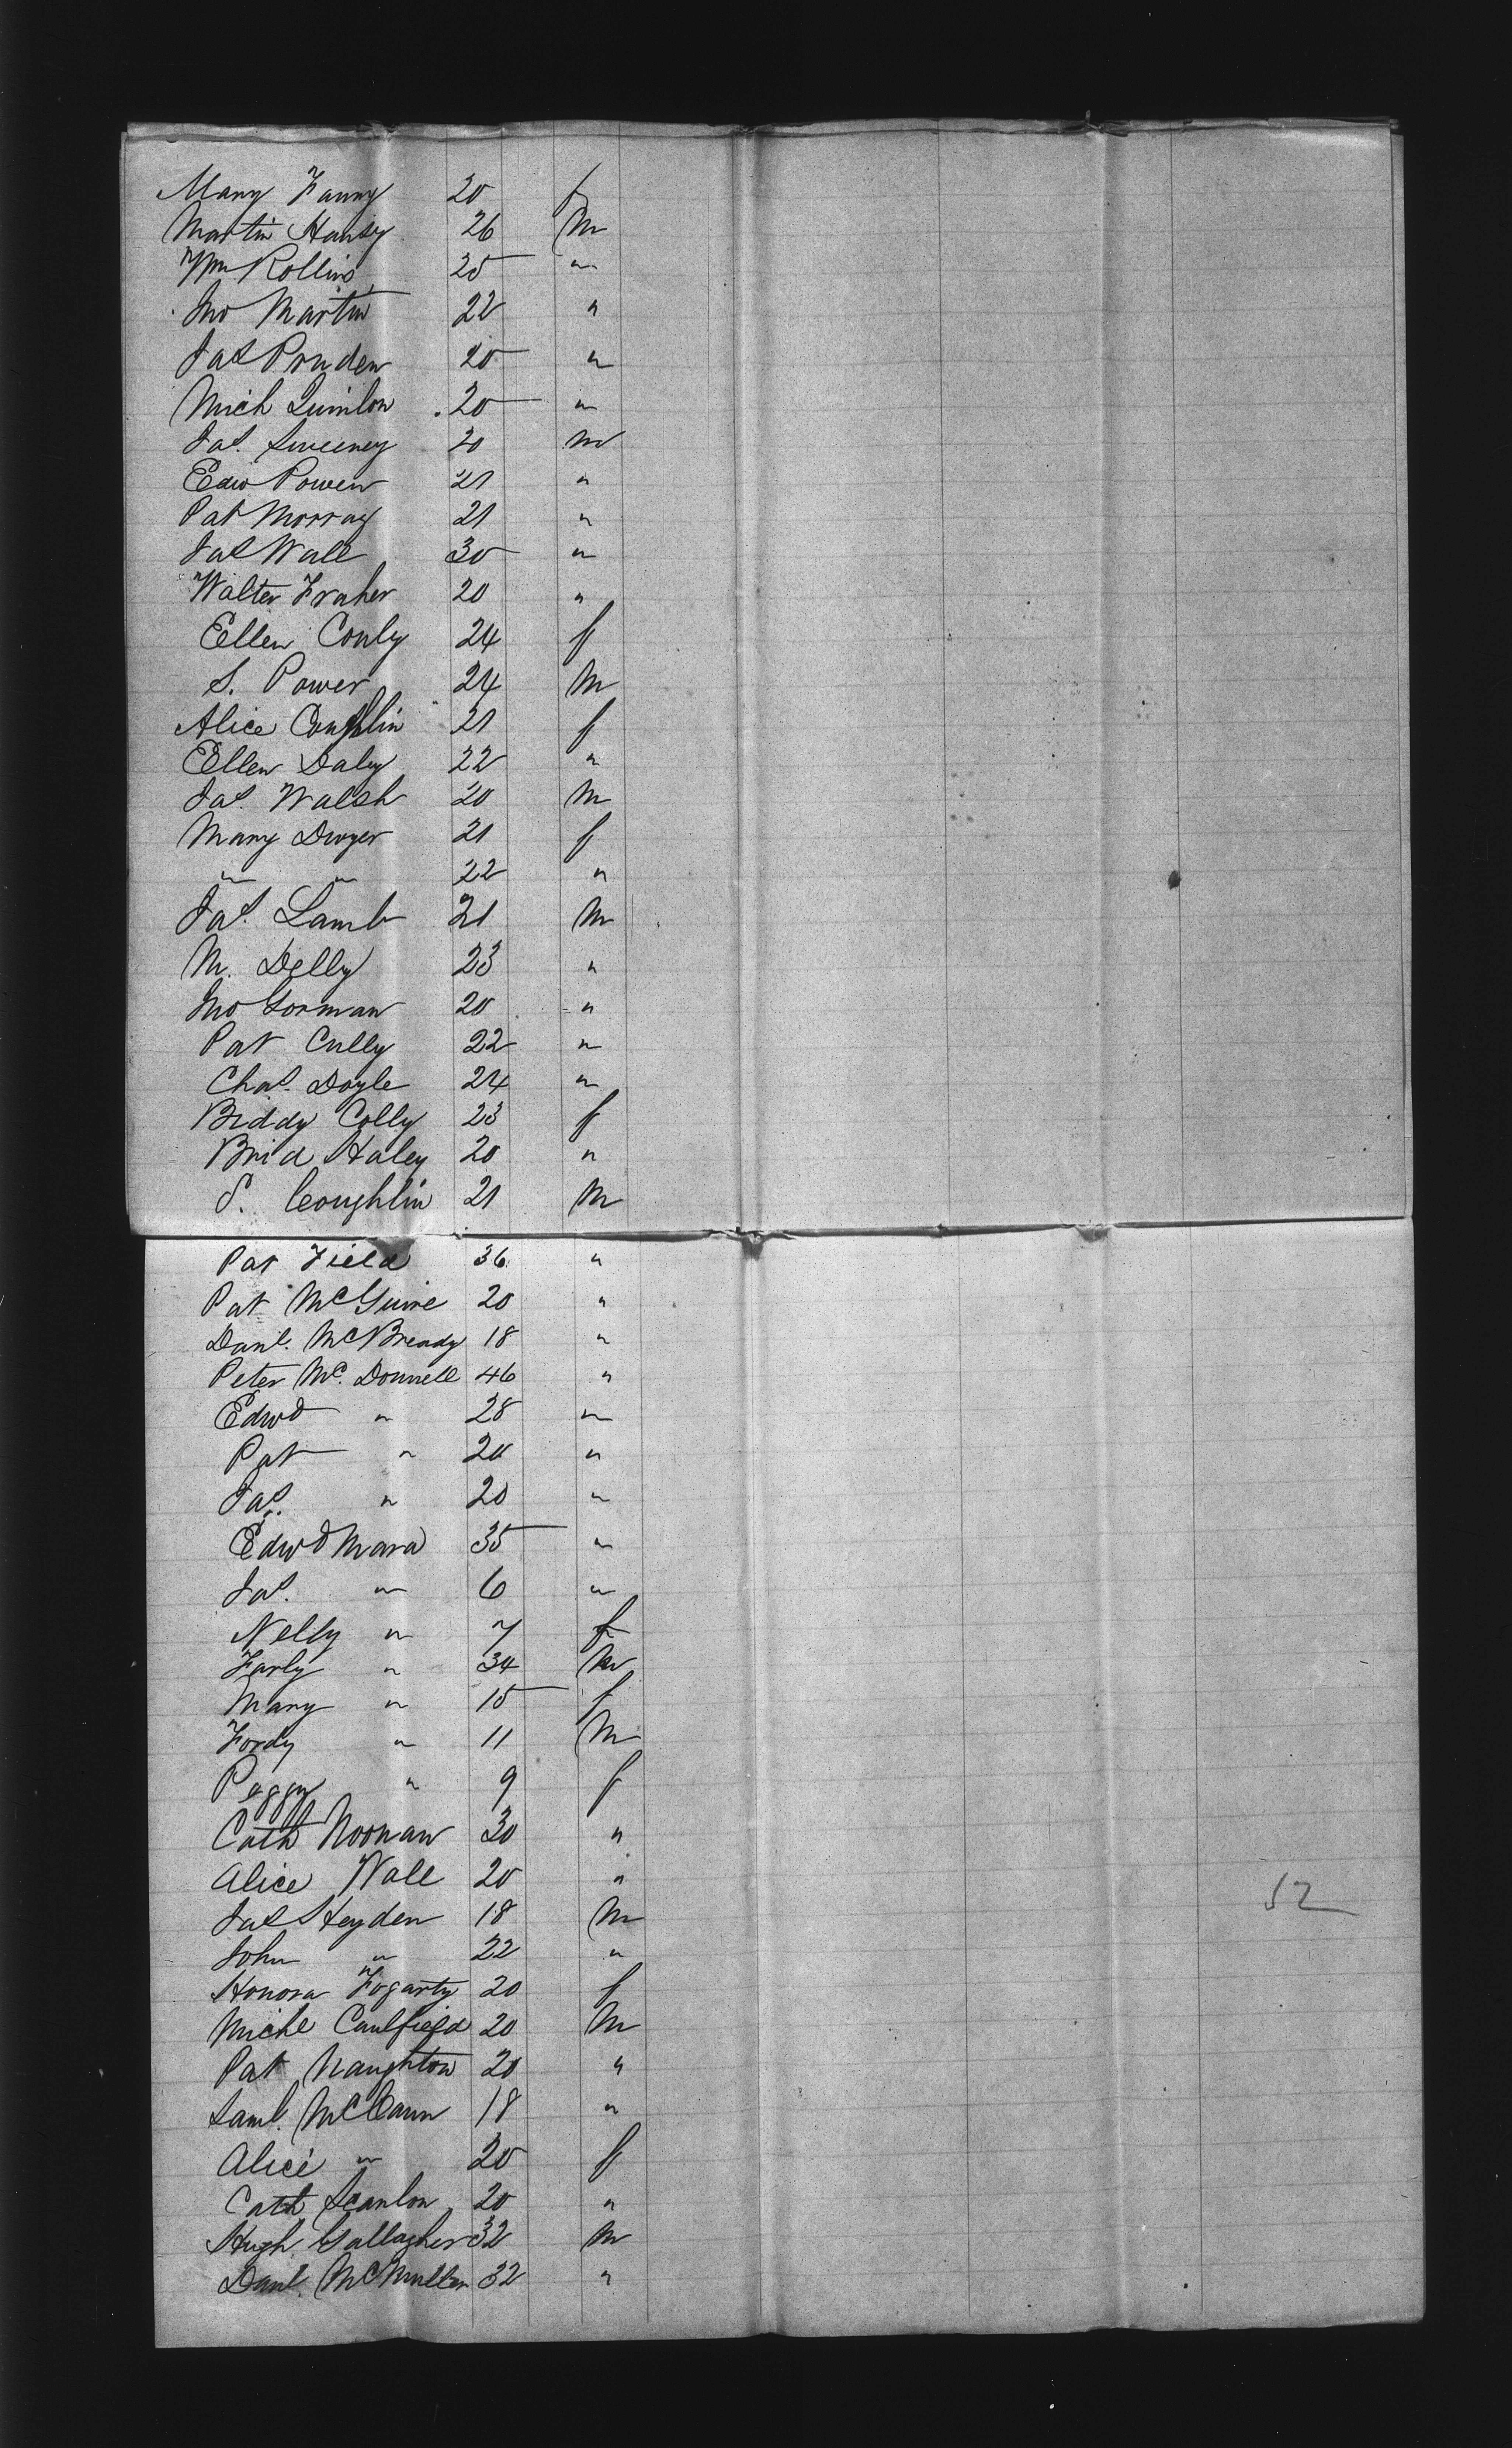 Mary Fanny 20 f
Martin Hansy 26 m
Wm Rollins 20 "
Jno Martin 22 "
Jas Pruden 20 "
Mich Quinlon 20 "
Jas. Sweeney 20 m
Edw Power 21 "
Pat Morray 21 "
Jas Wall 30 "
Walter Fraher 20 "
Ellen Conly 24 f
S. Power 24 m
Alice Coughlin 21 f
Ellen Daley 22 "
Jas. Walsh 20 m
Mary Dwyer 21 f
" " 22 "
Jas. Lamb 21 m
M. Delly 23 "
Jno Gorman 20 "
Pat Cully 22 "
Chas. Doyle 24 "
Biddy Colly 23 f
Brid Haley 20 "
P. Coughlin 21 m
Pat Field 36 "
Pat McGuire 20 "
Danl. McBready 18 "
Peter Mc. Donnell 46 "
Edwd " 28 "
Pat " 20 "
Jas. " 20 "
Edwd Mara 35 "
Jas. " 6 "
Nelly " 7 f
Farly " 34 m
Mary " 15 f
Fordy " 11 m
Peggy " 9 f
Cath Noonan 30 "
Alice Wall 20 "
Jas Heyden 18 m
John " 22 "
Honora Fogarty 20 f
Michl Caulfield 20 m
Pat Naughton 20 "
Saml. McCann 18 "
Alice " 20 f
Cath Scanlon 20 "
Hugh Gallagher 32 m
Danl. McMullen 32 "
52